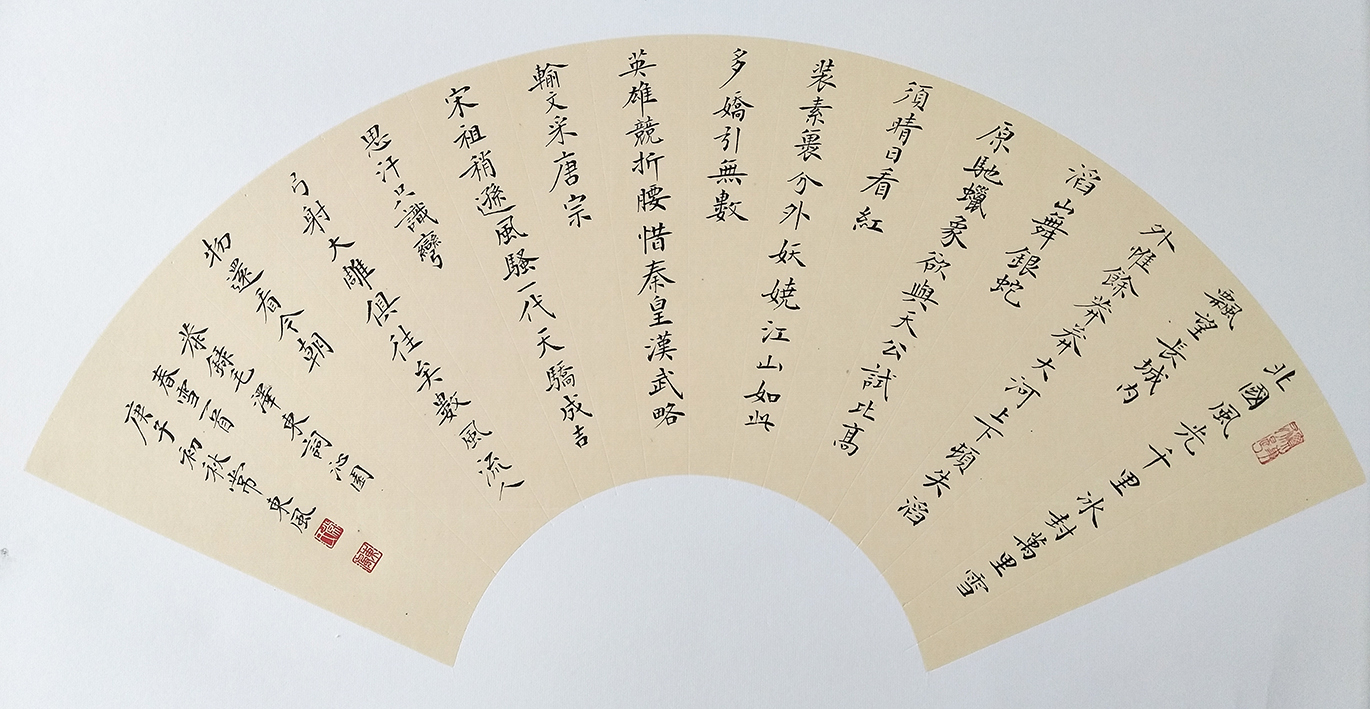 北國風光千里冰封萬里雪
飄望長城内
外惟餘莽莽大河上下頓失滔
滔山舞銀蛇
原馳蠟象欲與天公試比高
須晴日看紅
装素裹分外妖嬈江山如此
多嬌引無數
英雄競折腰惜秦皇漢武略
輸文采唐宗
宋祖稍遜風騷一代天驕成吉
思汗只識彎
弓射大雕俱往矣數風流人
物還看今朝
恭錄毛澤東詞沁園
春雪一首
庚子初秋常東風